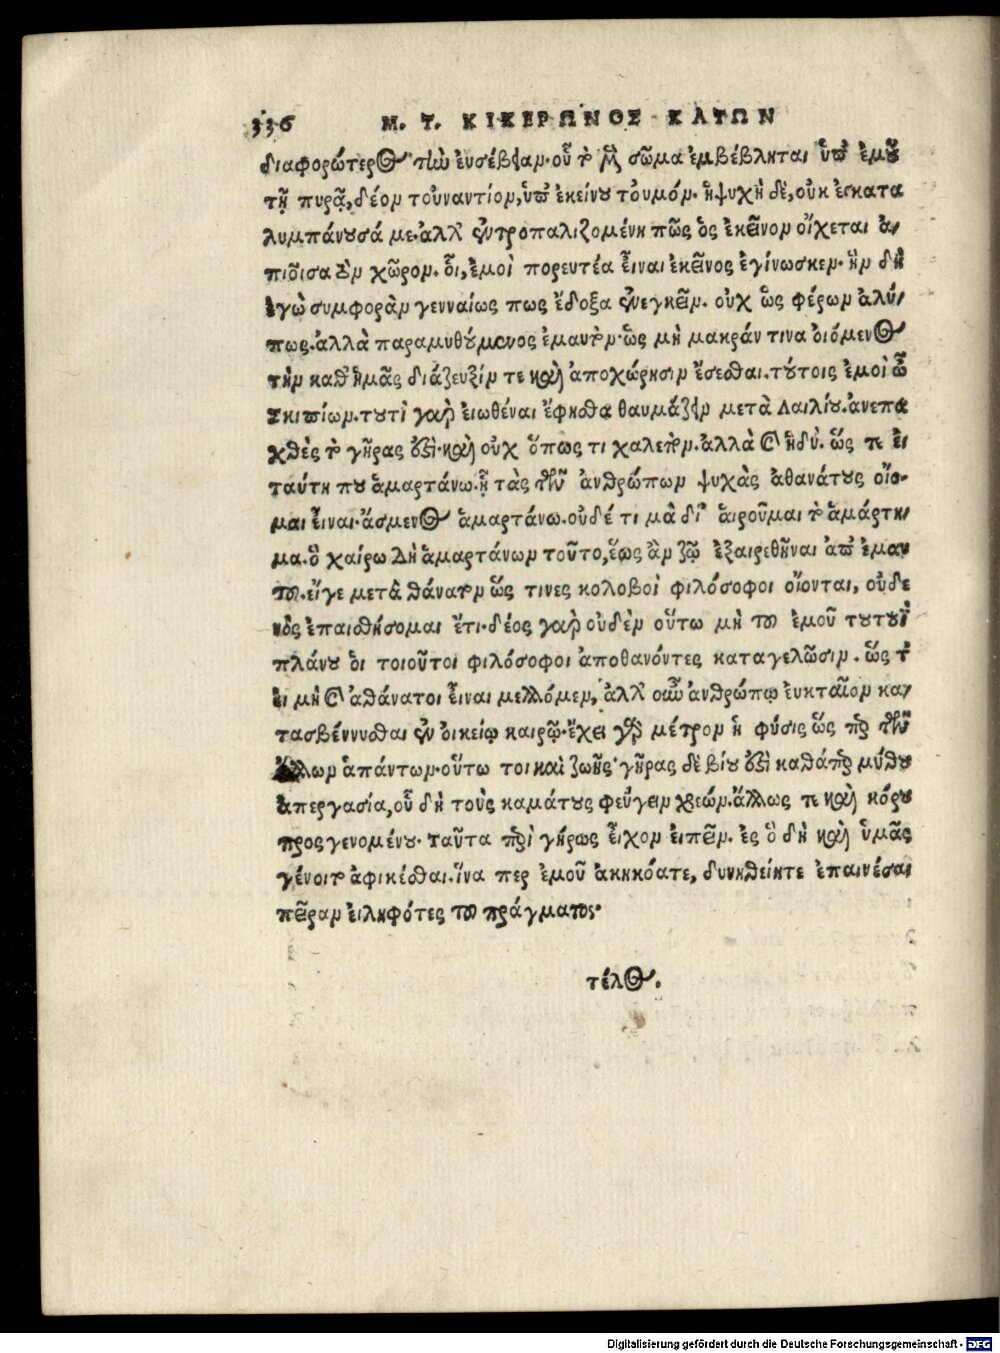 336 Μ. Τ. ΚΙΚΕΡΩΝΟΣ ΚΑΤΩΝ
διαφορώτερος τὴν ἐυσέβειαν· οὗ τὸ μὲν σῶμα ἐμβέβληται ὑπ' ἐμοῦ
τῇ πυρᾷ, δέον τοὐναντίον, ὑπ' ἐκείνου τοὐμόν. ἡ ψυχὴ δὲ, οὐκ ἐσκατα
λυμπάνουσά με. ἀλλ' ἐντροπαλιζομένη πῶς ὃς ἐκεῖνον οἴχεται ἀ/
πιοῖσα τὸν χῶρον. ὅι, ἐμοὶ πορευτέα εἶναι ἐκεῖνος ἐγίνωσκεν. ἣν δὴ
ἐγὼ συμφορὰν γενναίως πως ἔδοξα ἐνεγκεῖν. οὐχ ὡς φέρων ἀλύ/
πως. ἀλλὰ παραμυθούμενος ἐμαυτὸν· ὡς μὴ μακράν τινα ὀιόμενος
τὴν καθ' ἡμᾶς διάζευξίν τε καὶ ἀποχώρησιν ἔσεσθαι. τούτοις ἐμοὶ ὦ
Σκιπίων. τουτὶ γὰρ ειωθέναι ἔφησθα θαυμάζειν μετὰ Λαιλίου. ἀνεπα
χθὲς τὸ γῆρας ἐστὶ· καὶ οὐχ ὅπως τι χαλεπὸν. ἀλλὰ καὶ ἡδὺ. ὥς τε ἐι
ταύτῃ που ἁμαρτάνω. ᾗ τὰς τῶν ἀνθρώπων ψυχὰς ἀθανάτους οἴο-
μαι εἶναι· ἄσμενος ἁμαρτάνω. οὐδέ τι μὰ δί' ἁιροῦμαι τὸ ἁμάρτη/
μα. ὃ χαίρω Δὴ ἁμαρτάνων τοῦτο, ἕως ἂν ζῶ ἐξαιρεθῆναι ἀπ' ἐμαυ
τοῦ. εἴγε μετὰ θάνατον ὥς τινες κολοβοὶ φιλόσοφοι οἴονται, οὐδε
νὸς ἐπαισθήσομαι ἔτι. δέος γὰρ οὐδὲν οὕτω μὴ τοῦ ἐμοῦ τουτουῒ
πλάνου ὁι τοιοῦτοι φιλόσοφοι ἀποθανόντες καταγελῶσιν. ὥς τ'
ἐι μὴ καὶ ἀθάνατοι εἶναι μέλλομεν, ἀλλ' οὖν ἀνθρώπῳ ἐυκταῖον κα/
τασβέννυσθαι ἐν ὀικείῳ καιρῷ. ἔχει γὰρ μέτρον ἡ φύσις ὥς περ τῶν
ἄλλων ἁπάντων. οὕτω τοι καὶ ζωῆς· γῆρας δὲ βίου ἐστὶ καθάπερ μύθου
ἀπεργασία, οὗ δὴ τοὺς καμάτους φεύγειν χρεών. ἄλλως τε καὶ κόρου
προς γενομένου. ταῦτα περὶ γήρως εἶχον ἐιπεῖν. ἐς ὃ δὴ καὶ ὑμᾶς
γένοιτο ἀφικέσθαι. ἵνα περ ἐμοῦ ἀκηκόατε, δυνηθείητε ἐπαινέσαι
πεῖραν ἐιληφότες τοῦ πράγματος.
τέλος.
Digitalisierung gefördert durch die Deutsche Forschungsgemeinschaft - DFG